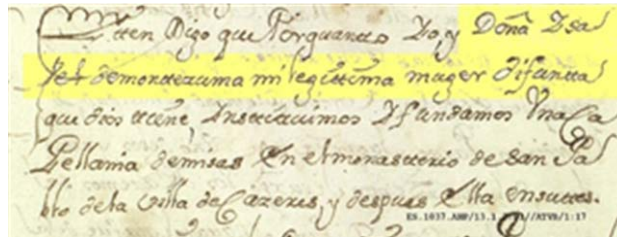 Itten Digo que Porquanto Yo, y Doña Ysa
bel demontezuma mi legittima muger difuntta
que dios ttiene, Instituimos Y fundamos Una Ca
Pellania demisas En el monasterio de San Pa
blo dela Villa de Cazeres, y despues Ella en su ttes.
ES.1037.AHP/13.1.//ATVB/1:17